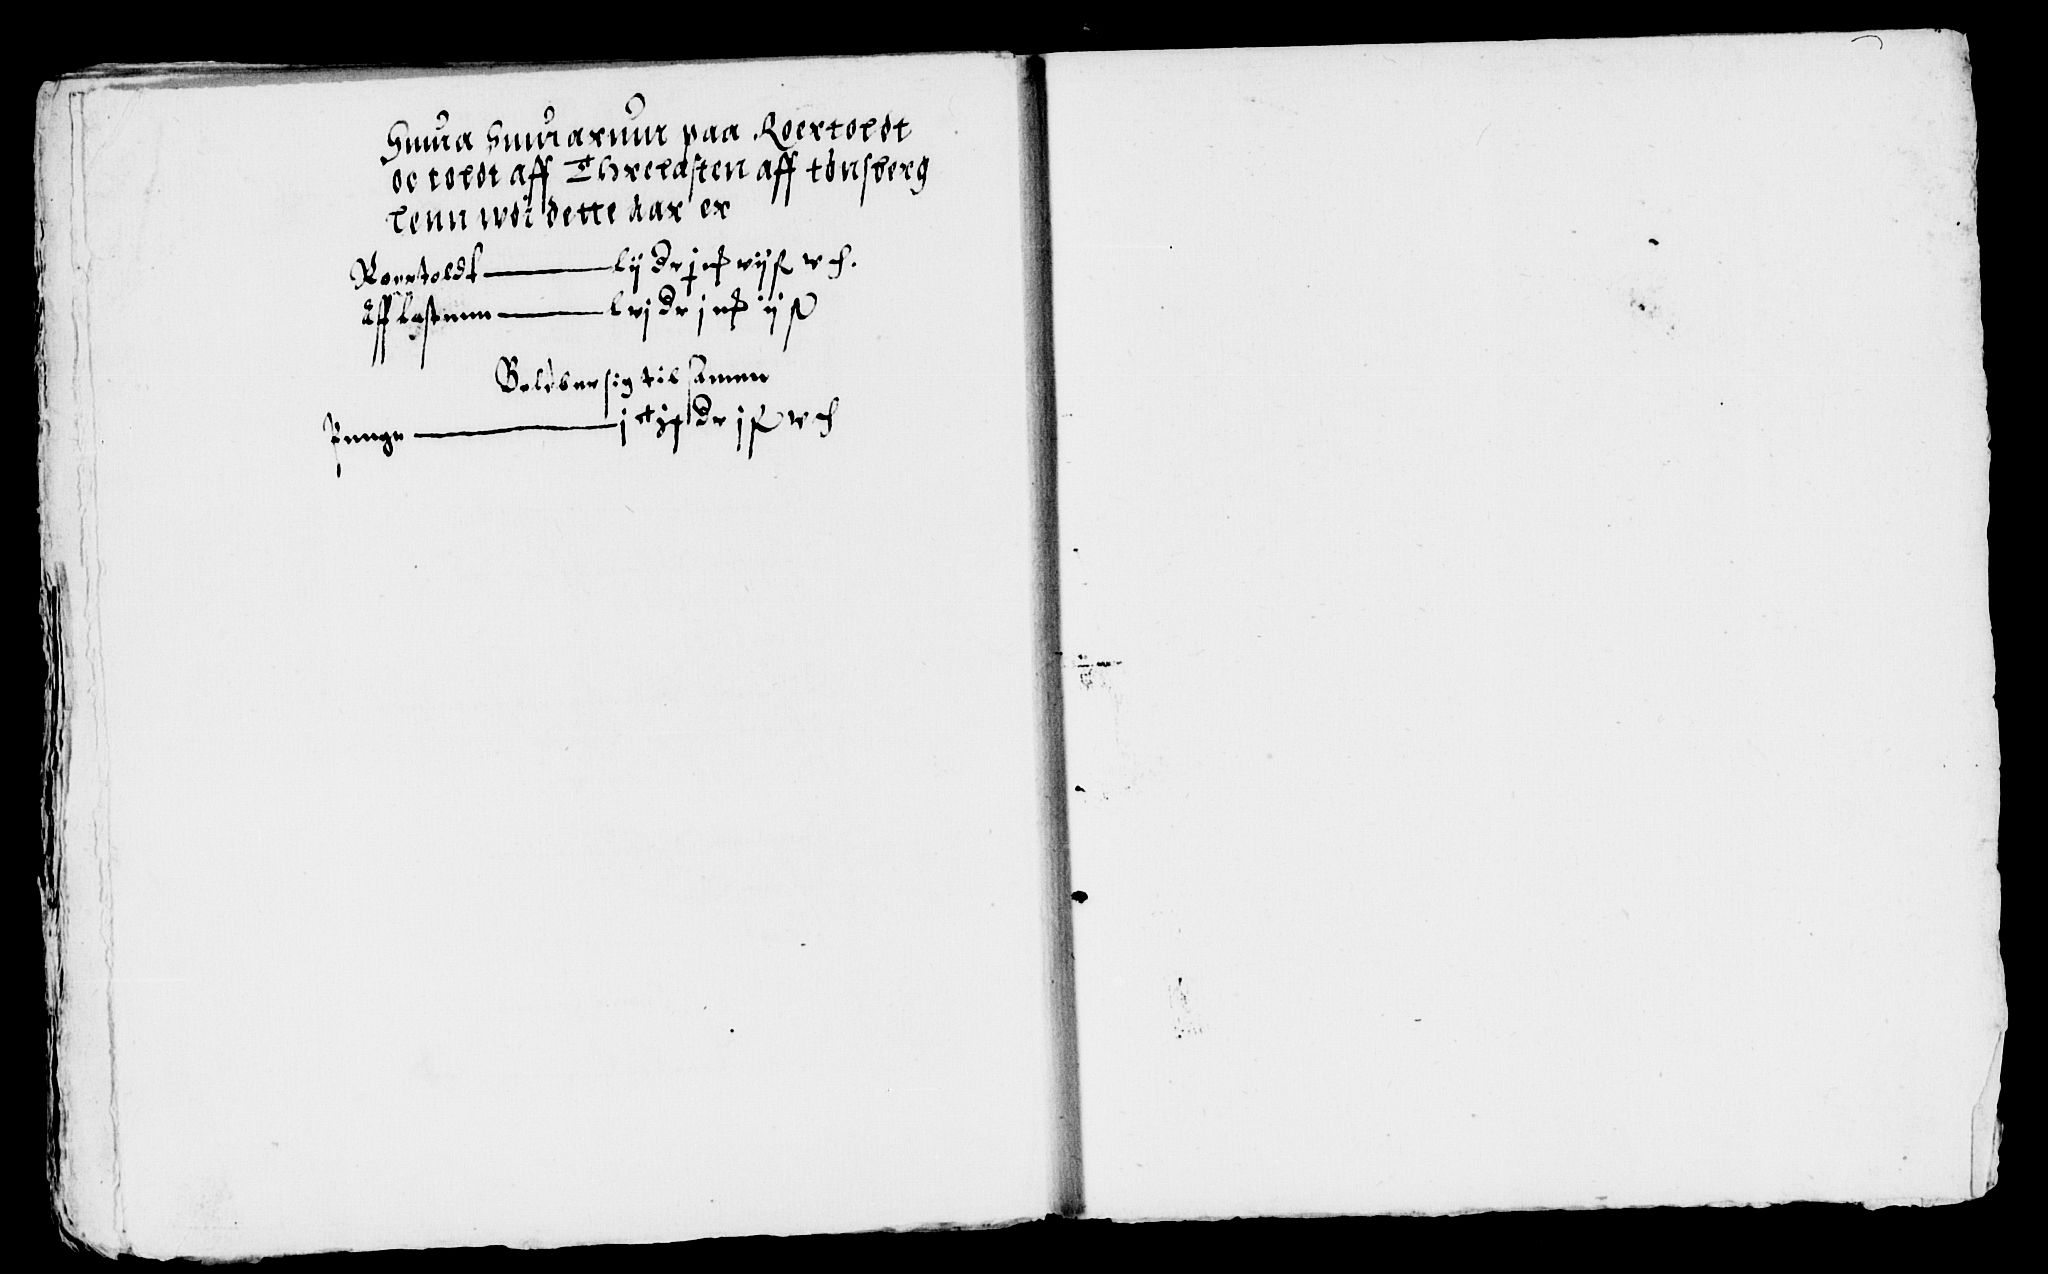 Suma Sumarum paa Roertoldt
oc toldt aff Threlasten aff tønsberg
lenn udi dette aar er
Roertoldt — lij dr j mk vij ß v ₰.
Aff lastenn — lvj dr j mk ij ß
Beløber sig til samen
Penge — j c ix dr j ß v ₰